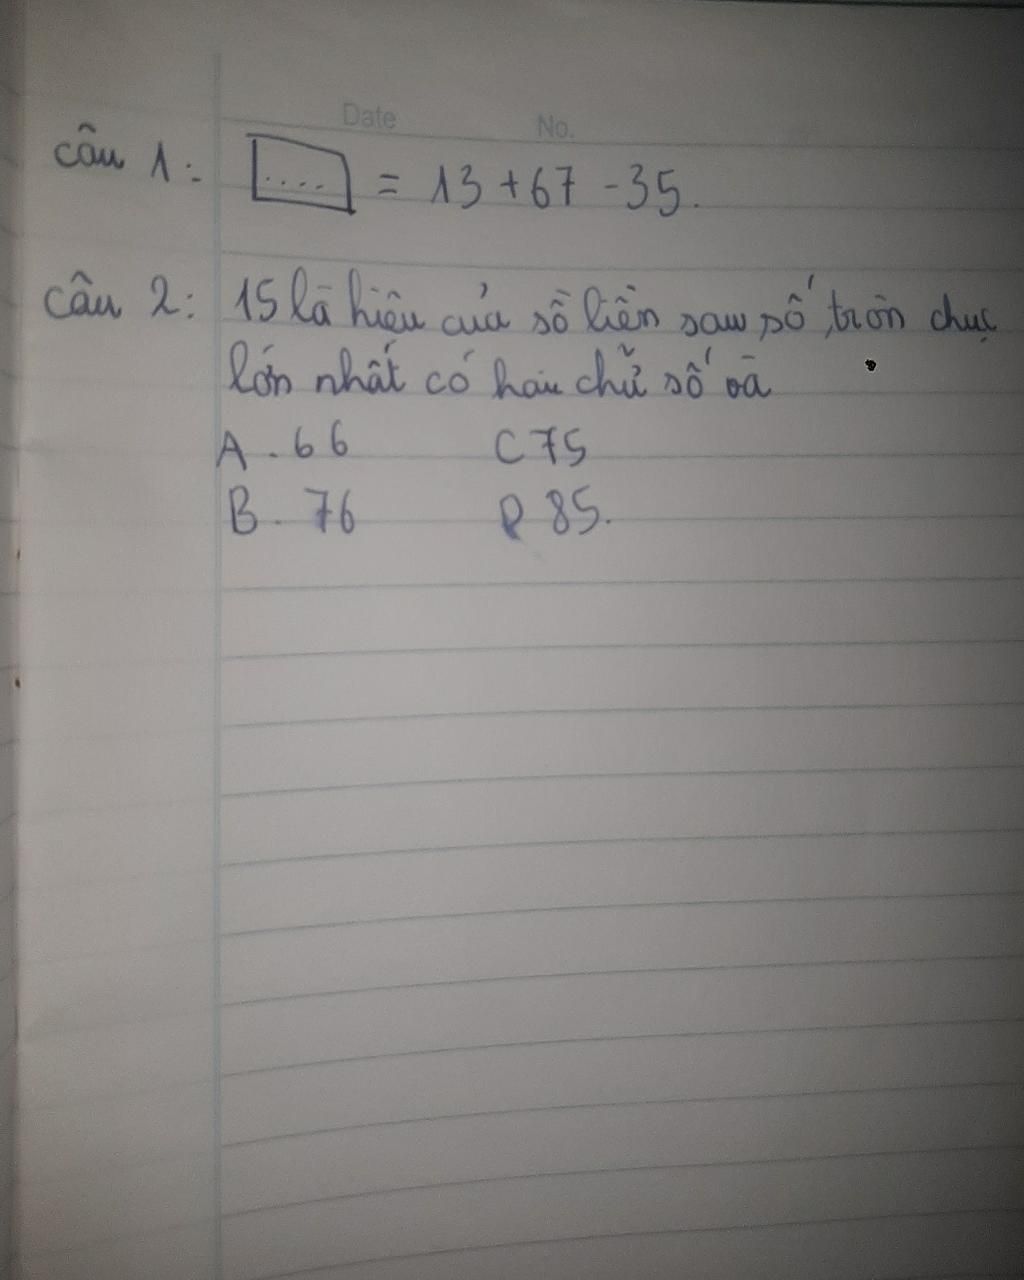 Date No.
câu 1: .... = 13 + 67 - 35.
câu 2: 15 là hiệu của số liền sau số tròn chục
lớn nhất có hai chữ số và
A. 66 C 75
B. 76 D 85.